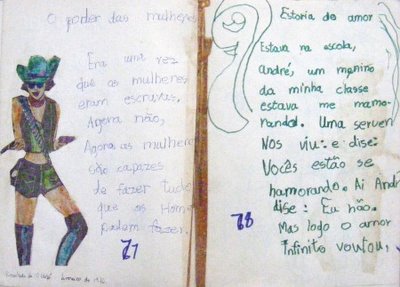 O poder das mulheres
Era uma vez
que as mulheres
eram escravas.
Agora não,
Agora as mulheres
são capazes
de fazer tudo
que os Homens
podem fazer.
77
Estoria de amor
Estava na escola,
andré, um menino
da minha classe
estava me namo-
rando. Uma serven
Nos viu: e disse:
Vocês estão se
namorando. Ai Andr
disse: Eu não.
Mas logo o amor
Infinito voutou,
78